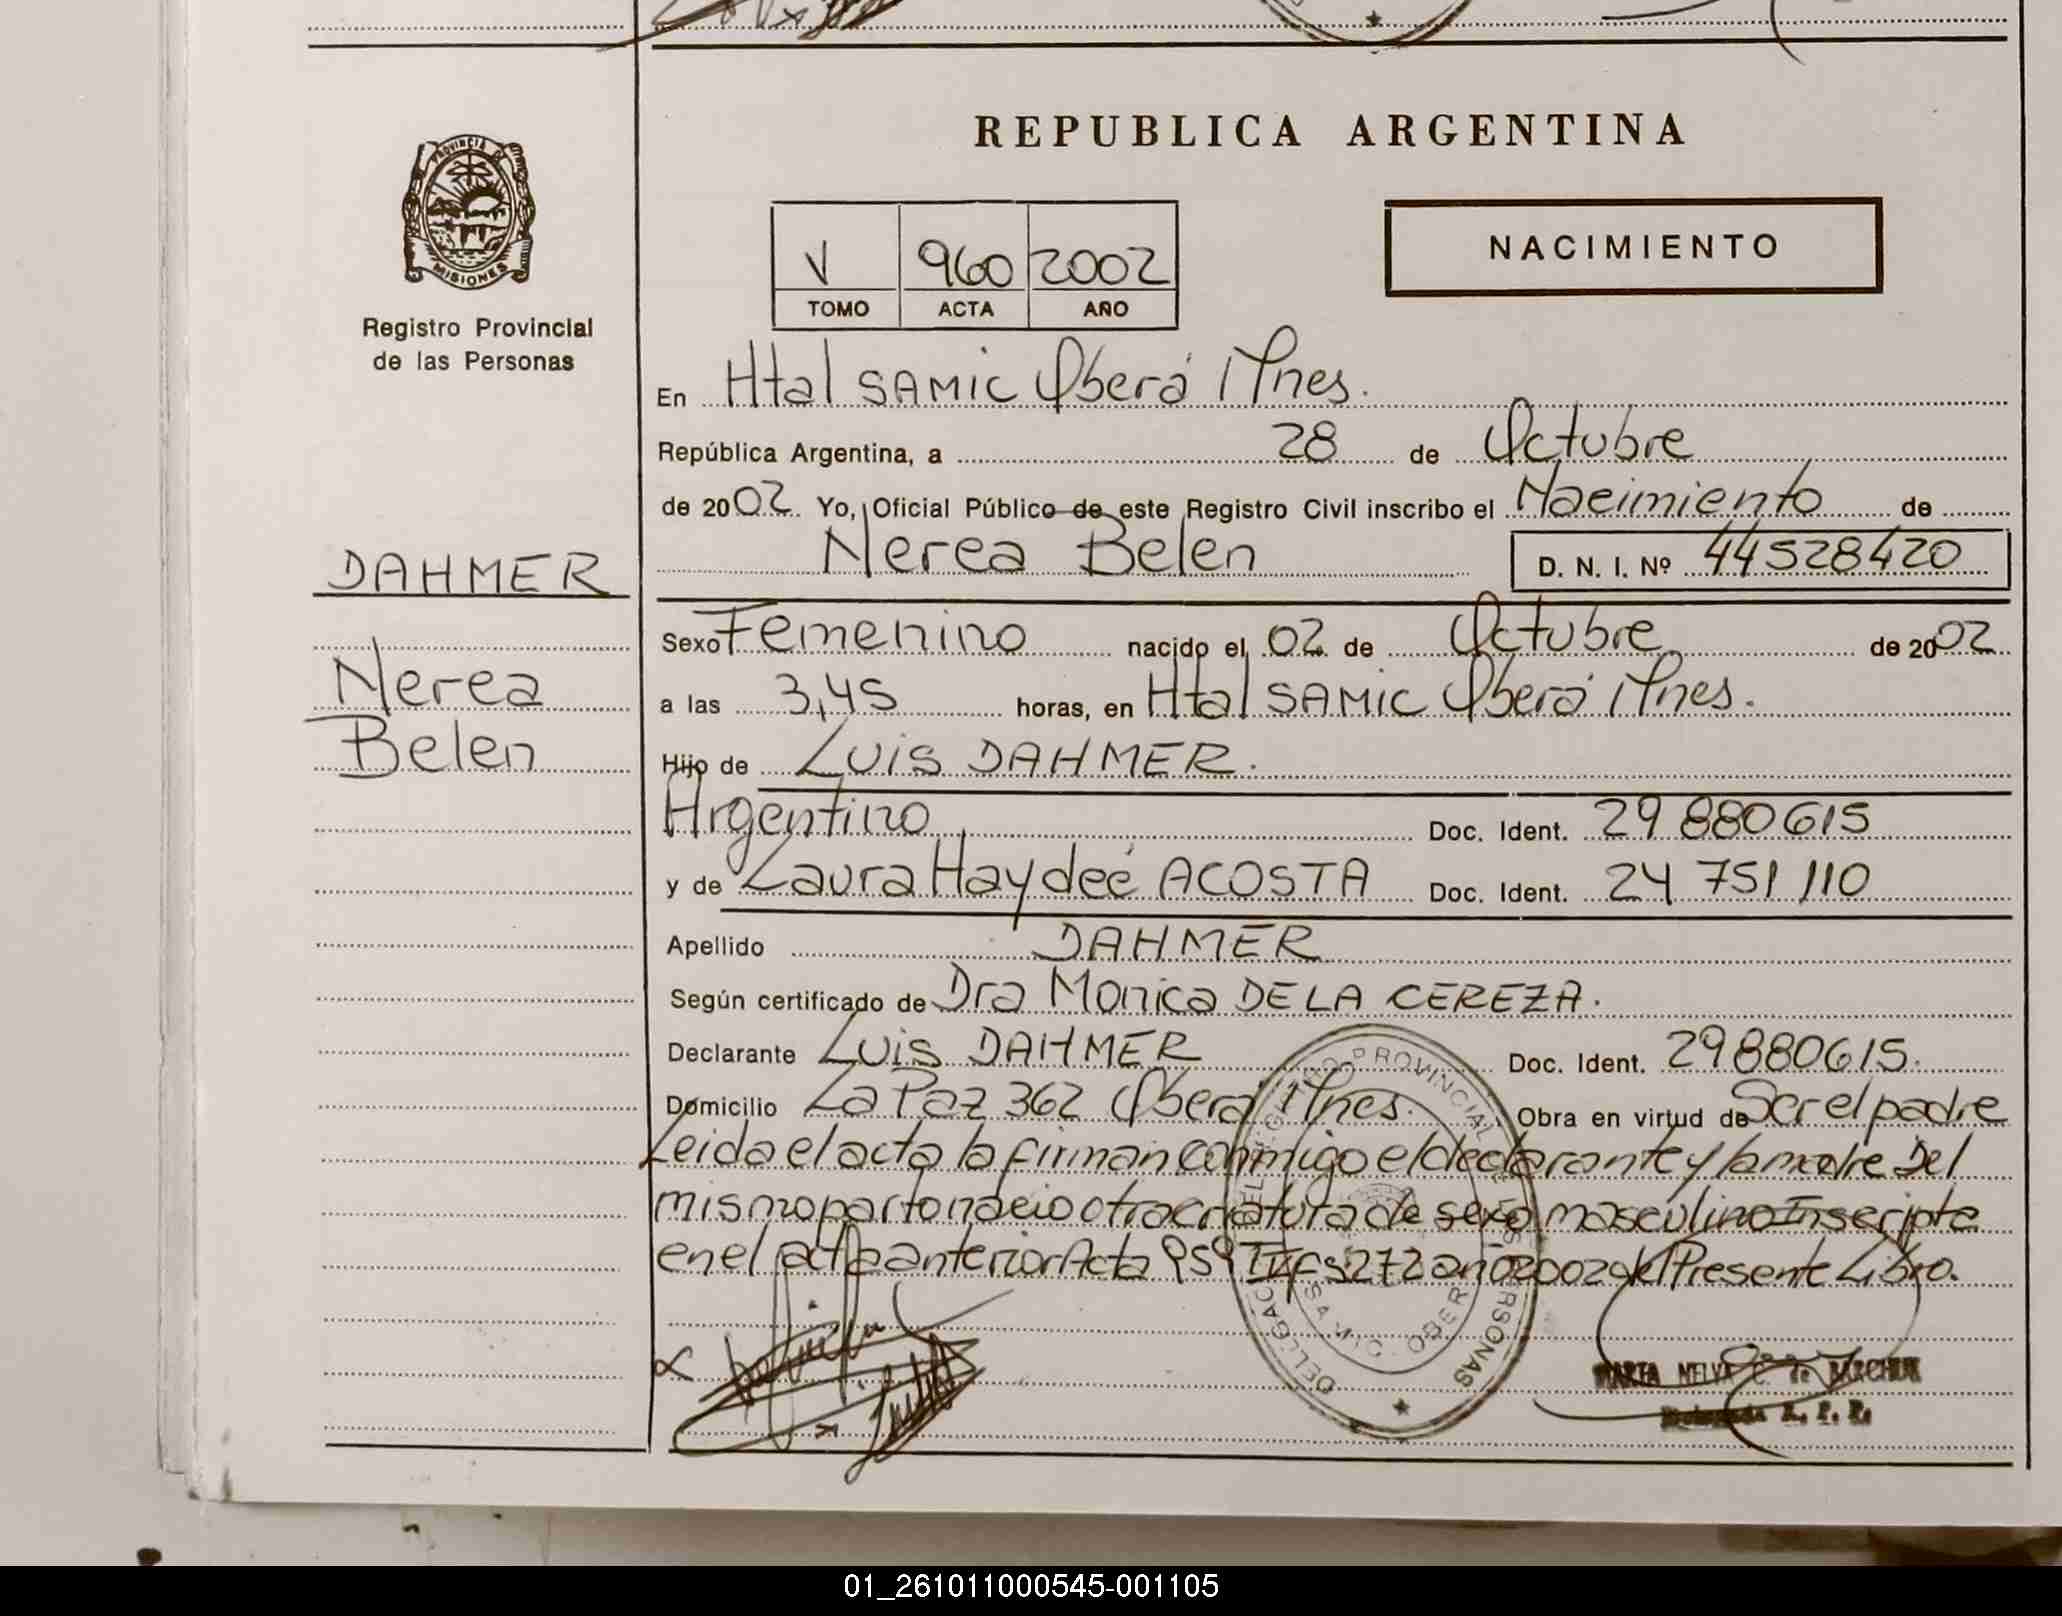 PROVINCIA DE
MISIONES
Registro Provincial
de las Personas
DAHMER
Nerea
Belen
REPUBLICA ARGENTINA
V 960 2002
TOMO ACTA AÑO
NACIMIENTO
En Htal SAMIC Oberá Mnes.
República Argentina, a 28 de Octubre
de 2002. Yo, Oficial Público de este Registro Civil inscribo el Nacimiento de
Nerea Belen D. N. I. Nº 44528420
Sexo Femenino nacido el 02 de Octubre de 2002
a las 3,45 horas, en Htal SAMIC Oberá Mnes.
Hijo de Luis DAHMER.
Argentino Doc. Ident. 29 880615
y de Laura Haydeé ACOSTA Doc. Ident. 24 751 110
Apellido DAHMER
Según certificado de Dra Monica DE LA CEREZA.
Declarante Luis DAHMER Doc. Ident. 29880615.
Domicilio La Paz 362 Oberá Mnes. Obra en virtud de Ser el padre
Leida el acta la firman conmigo el declarante y la madre Del
mismo parto nacio otra criatura de sexo masculino Inscripta
en el acta anterior Acta 959 año 2002 del Presente Libro.
DELEGACION REGISTRO PROVINCIAL DE LAS PERSONAS
SAMIC. OBERA
MARTA NELVA C. de
Delegada R. P. P.
01_261011000545-001105